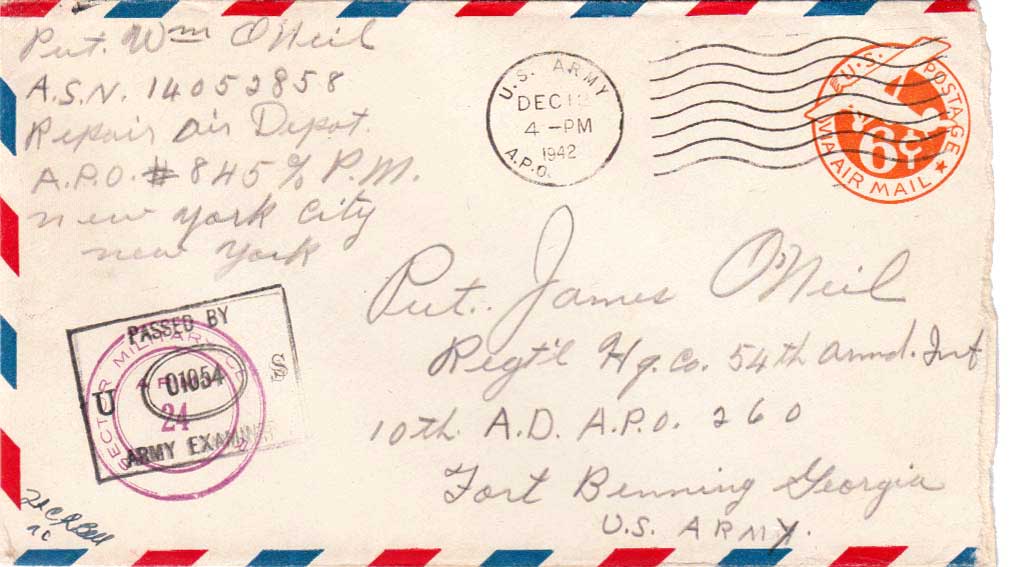 Pvt. Wm O'Neil
A.S.N. 14052858
Repair Air Depot.
A.P.O. #845 % P.M.
New York City
New York
U.S. ARMY
DEC 12
4-PM
1942
A.P.O.
U.S. POSTAGE
6¢
VIA AIR MAIL
Pvt. James O'Neil
Reg't'l Hq. Co. 54th Armd. Inf
10th A.D. A.P.O. 260
Fort Benning Georgia
U.S. ARMY.
PASSED BY
U
01054
ARMY EXAMINER
MILITARY
24